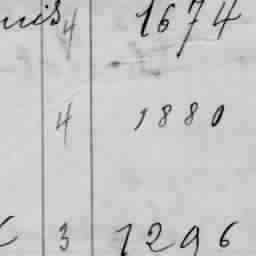 4 1674
4 1880
3 1296